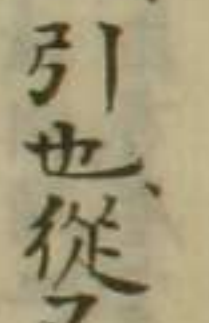 引也、從